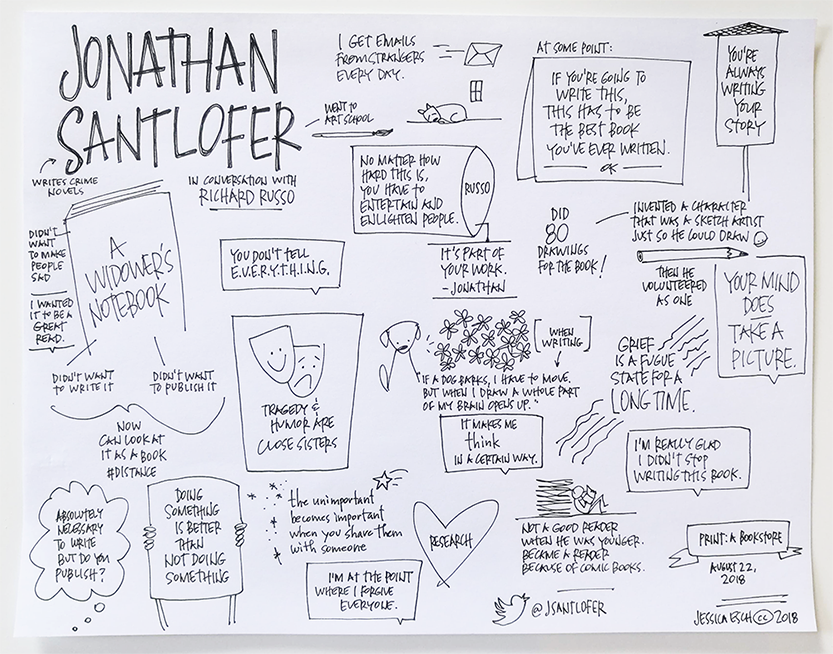 JONATHAN
SANTLOFER
WRITES CRIME
NOVELS
IN CONVERSATION WITH
RICHARD RUSSO
WENT TO
ART SCHOOL
I GET EMAILS
FROM STRANGERS
EVERY DAY.
AT SOME POINT:
IF YOU'RE GOING TO
WRITE THIS,
THIS HAS TO BE
THE BEST BOOK
YOU'VE EVER WRITTEN.
OK
YOU'RE
ALWAYS
WRITING
YOUR
STORY
NO MATTER HOW
HARD THIS IS,
YOU HAVE TO
ENTERTAIN AND
ENLIGHTEN PEOPLE.
RUSSO
IT'S PART OF
YOUR WORK.
- JONATHAN
DID
80
DRAWINGS
FOR THE BOOK!
INVENTED A CHARACTER
THAT WAS A SKETCH ARTIST
JUST SO HE COULD DRAW
THEN HE
VOLUNTEERED
AS ONE
YOUR MIND
DOES
TAKE A
PICTURE.
DIDN'T
WANT
TO MAKE
PEOPLE
SAD
I WANTED
IT TO BE A
GREAT
READ.
A
WIDOWER'S
NOTEBOOK
DIDN'T WANT
TO WRITE IT
DIDN'T WANT
TO PUBLISH IT
NOW
CAN LOOK AT
IT AS A BOOK
#DISTANCE
YOU DON'T TELL
E.V.E.R.Y.T.H.I.N.G.
TRAGEDY &
HUMOR ARE
CLOSE SISTERS
WHEN
WRITING
IF A DOG BARKS, I HAVE TO MOVE.
BUT WHEN I DRAW A WHOLE PART
OF MY BRAIN OPENS UP."
IT MAKES ME
think
IN A CERTAIN WAY.
GRIEF
IS A FUGUE
STATE FOR A
LONG TIME.
I'M REALLY GLAD
I DIDN'T STOP
WRITING THIS BOOK.
ABSOLUTELY
NECESSARY
TO WRITE
BUT DO YOU
PUBLISH?
DOING
SOMETHING
IS BETTER
THAN
NOT DOING
SOMETHING
the unimportant
becomes important
when you share them
with someone
I'M AT THE POINT
WHERE I FORGIVE
EVERYONE.
RESEARCH
NOT A GOOD READER
WHEN HE WAS YOUNGER.
BECAME A READER
BECAUSE OF COMIC BOOKS.
@JSANTLOFER
PRINT: A BOOKSTORE
AUGUST 22,
2018
JESSICA ESCH CC 2018